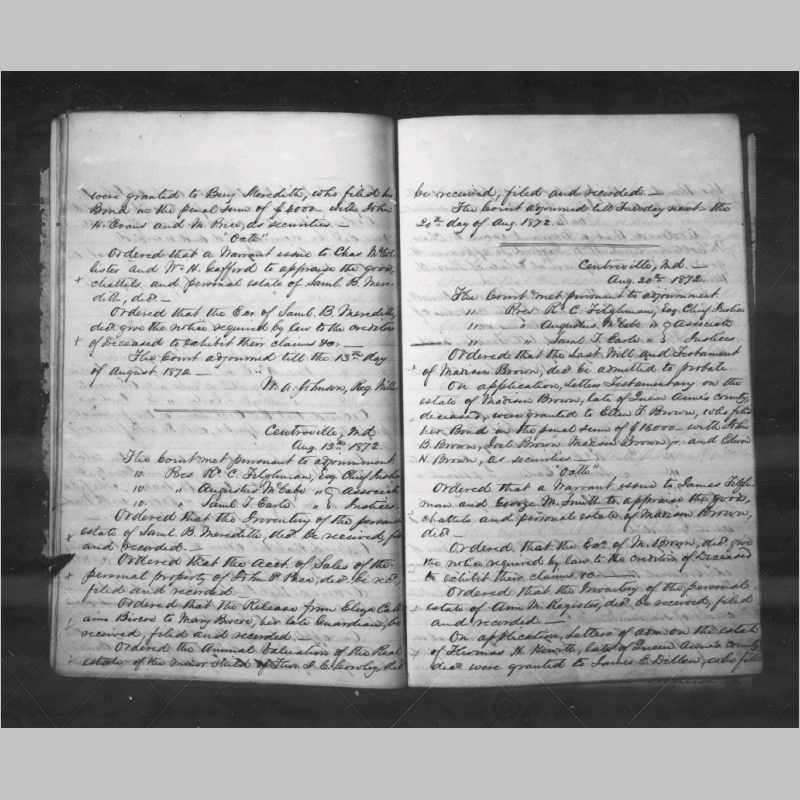 were granted to Benj Meredith, who filed his
Bond in the penal sum of $4000 with John
H. Evans and M. Price, as securities —
"Oath"
Ordered that a Warrant issue to Chas McCol
lister and Wm H. Gafford to appraise the goods,
chattels and personal estate of Saml. B. Mere-
dith, decd —
Ordered that the Exr. of Saml. B. Meredith,
decd give the notice required by law to the creditors
of Deceased to exhibit their claims &c. —
The Court adjourned till the 13th day
of August 1872 —
W. A. Johnson, Reg. Wills
Centreville, Md.
Aug. 13th, 1872.
The Court met pursuant to adjournment
" Pres R. C. Tilghman, Esq Chief Justice
" " Augustus McCabe " & Associate
" " Saml T. Earle " & Justices
Ordered that the Inventory of the personal
estate of Saml B. Meredith, decd be received, filed
and recorded. —
Ordered that the Acct. of Sales of the
personal property of John P. decd be recd.
filed and recorded —
Ordered that the Release from Eliza
to Mary her late Guardian, be
received, filed and recorded —
Ordered the Annual Valuation of the Real
estate of the minor of Thos. decd
be received, filed and recorded —
The Court adjourned till Tuesday next the
20th day of Aug. 1872. —
Centreville, Md. —
Aug. 20th 1872.
The Court met pursuant to adjournment
" Pres R. C. Tilghman, Esq Chief Justice
" " Augustus McCabe " & Associate
" " Saml T. Earle " & Justices
Ordered that the Last Will and Testament
of Madison Brown, decd be admitted to probate
On application, Letters Testamentary on the
estate of Madison Brown, late of Queen Anne's county,
deceased, were granted to Ellen T. Brown, who filed
her Bond in the penal sum of $16000 with John
B. Brown, Joel Brown Madison Brown jr. and Edwin
H. Brown, as securities —
"Oath"
Ordered that a Warrant issue to James Tilgh-
man and George M. Smith to appraise the goods,
chattels and personal estate of Madison Brown,
decd —
Ordered that the Exr. of M. Brown, decd give
the notice required by law to the creditors of Deceased
to exhibit their claims &c —
Ordered that the Inventory of the personal
estate of Ann M. Register, decd be received, filed
and recorded —
On application, Letters of adm on the estate
of Thomas H. late of Queen Anne's county
decd were granted to James E. Dillen, who filed